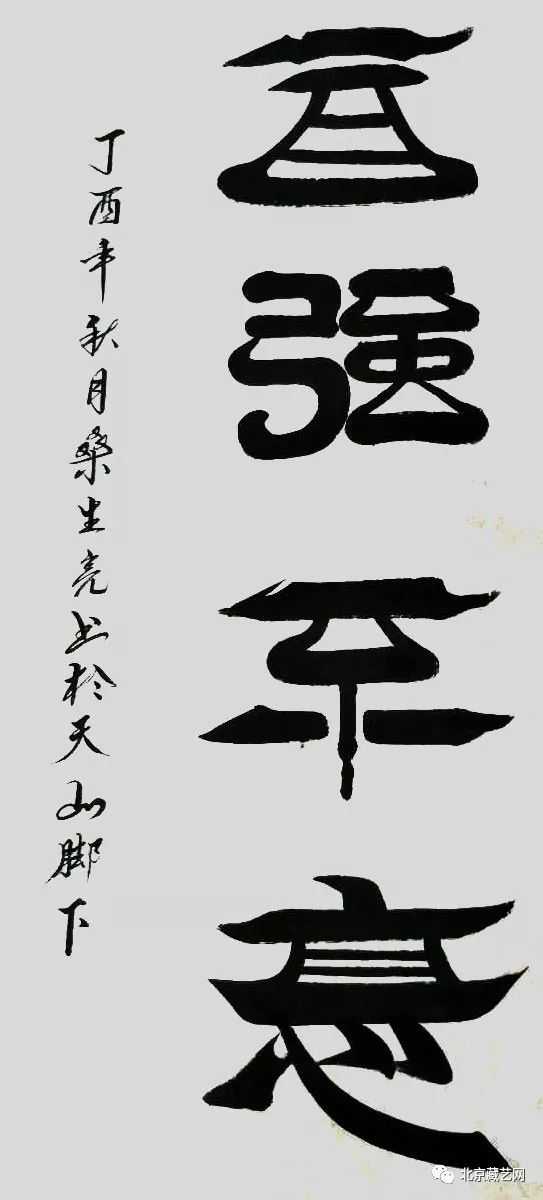 自強不息
丁酉年秋月桑生亮书於天山脚下
北京藏艺网